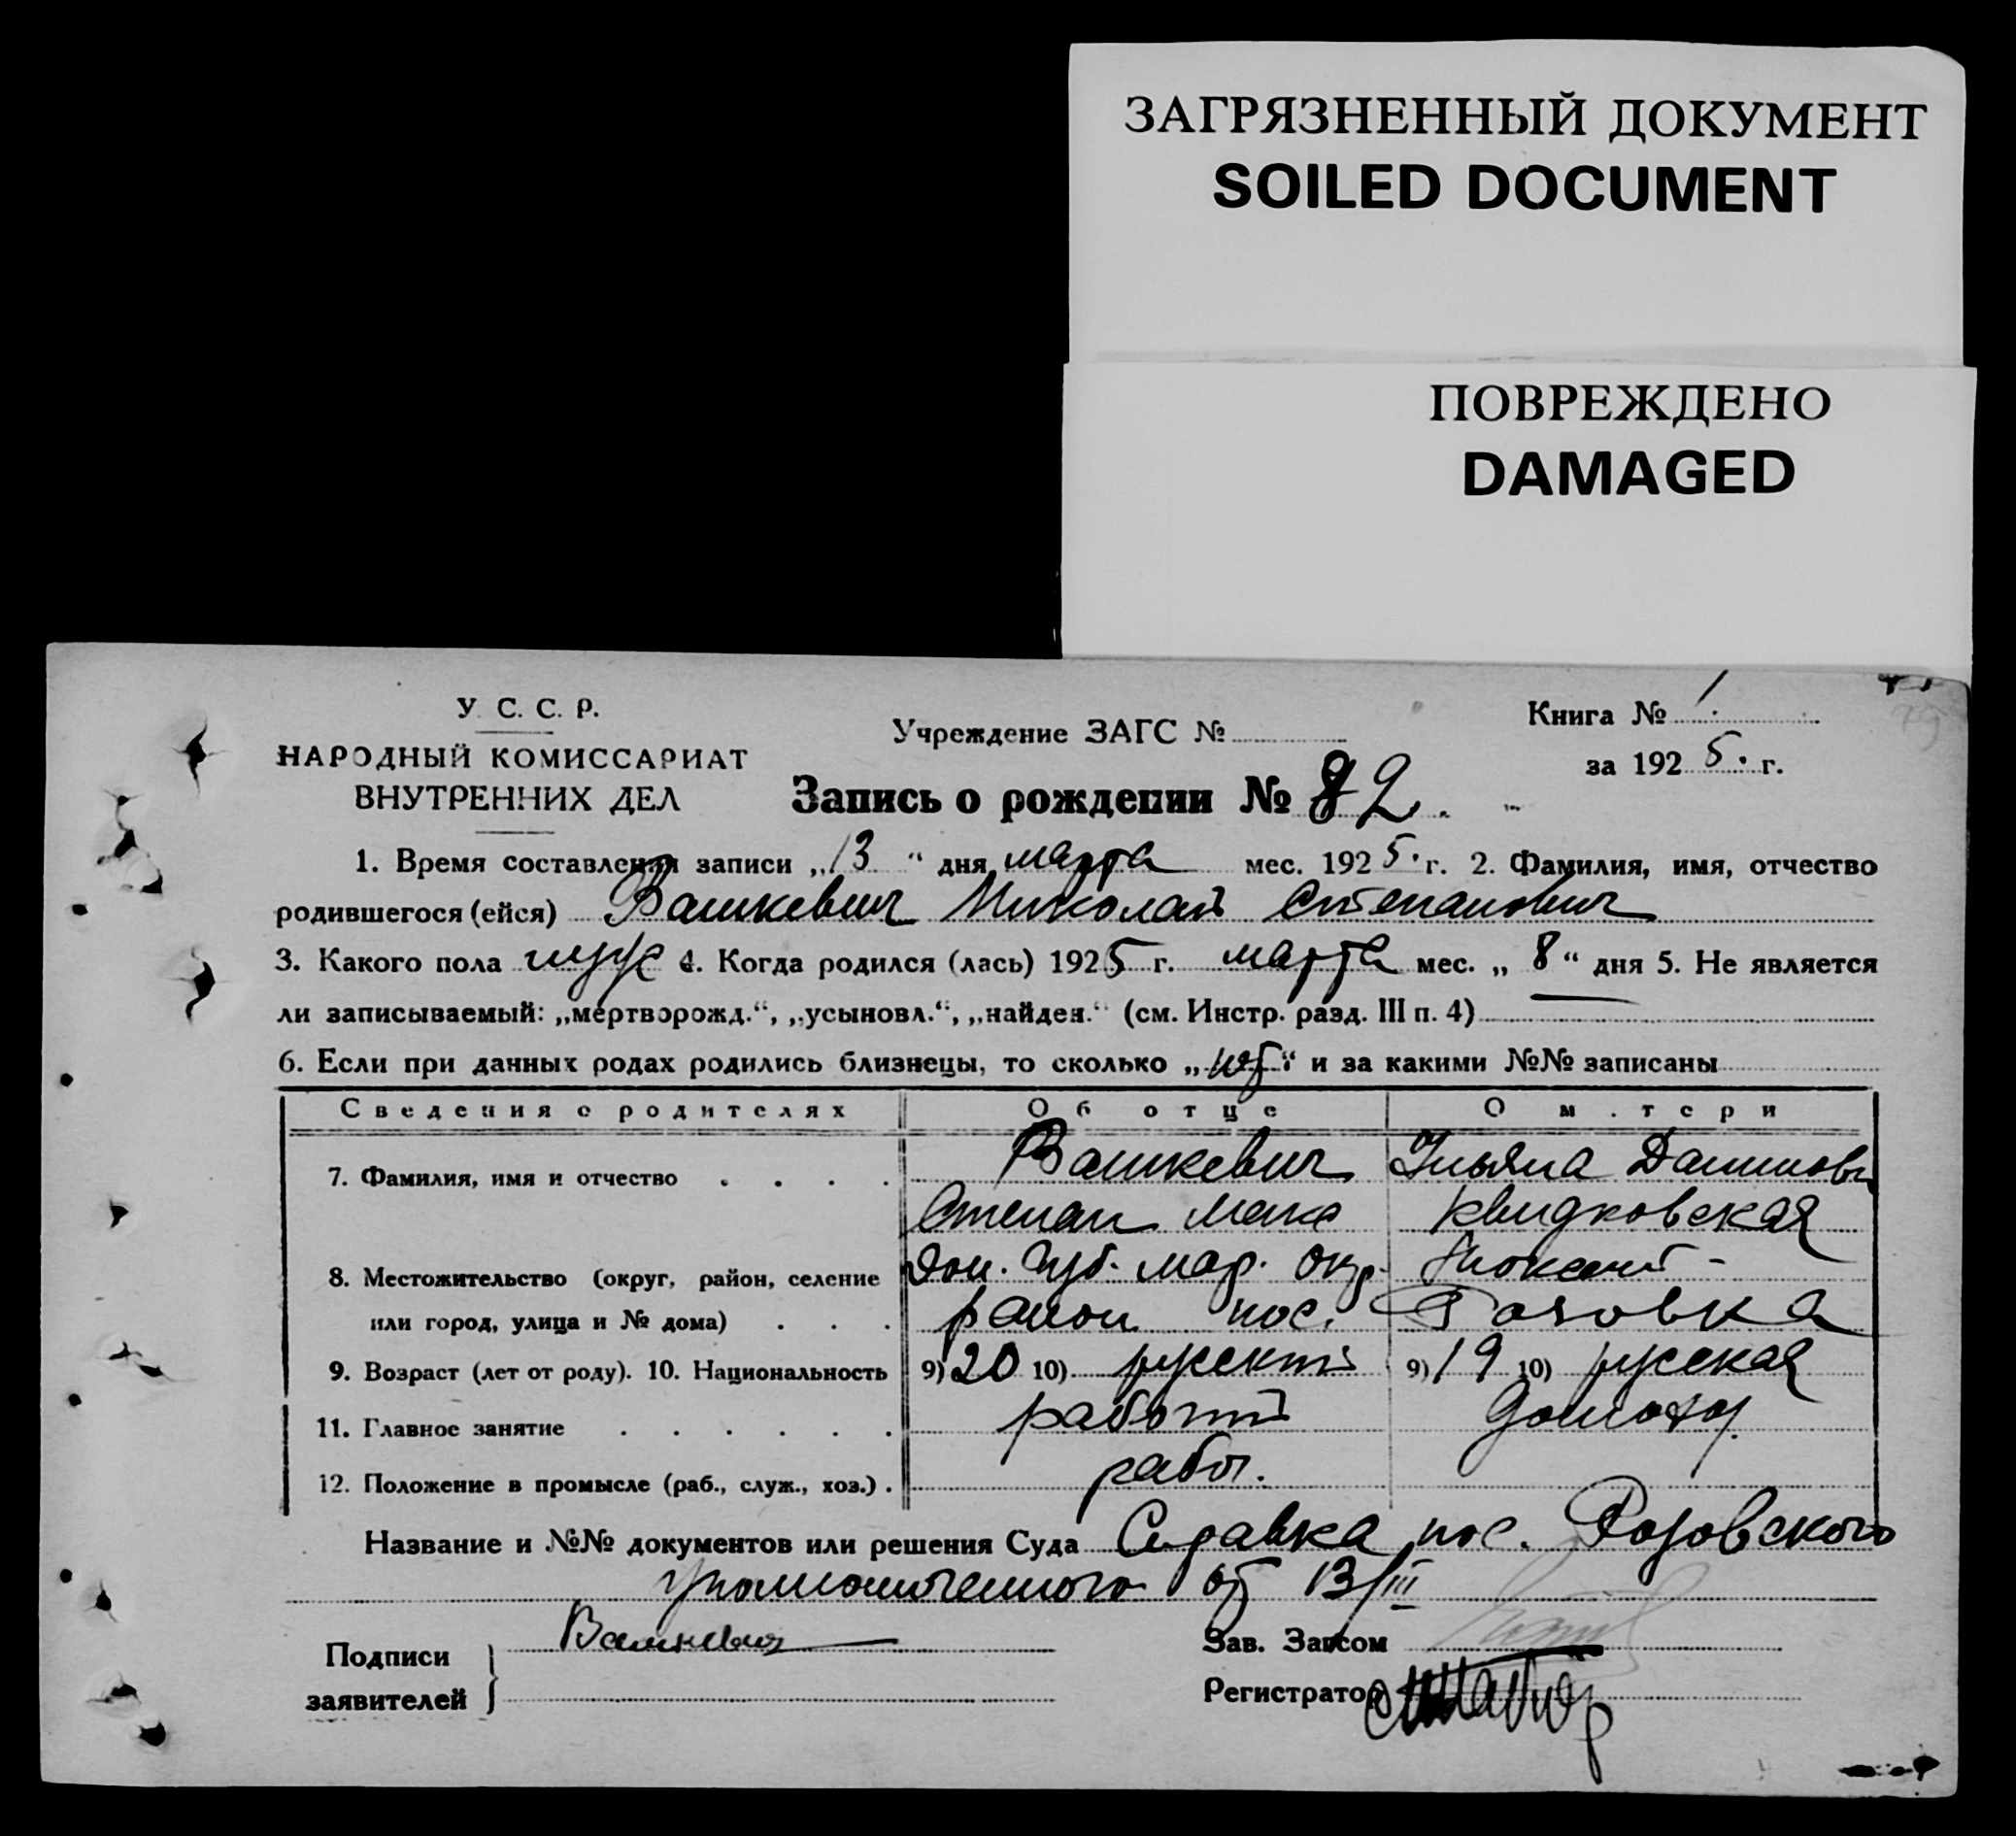 ЗАГРЯЗНЕННЫЙ ДОКУМЕНТ
SOILED DOCUMENT
ПОВРЕЖДЕНО
DAMAGED
У. С. С. Р.
НАРОДНЫЙ КОМИССАРИАТ
ВНУТРЕННИХ ДЕЛ
Учреждение ЗАГС №
Книга № 1.
за 1925. г.
Запись о рождении № 82.
1. Время составления записи „13“ дня марта мес. 1925. г. 2. Фамилия, имя, отчество
родившегося (ейся) Вашкевич Николай Степанович
3. Какого пола муж 4. Когда родился (лась) 1925 г. марта мес. „8“ дня 5. Не является
ли записываемый: „мертворожд.“, „усыновл.“, „найден.“ (см. Инстр. разд. III п. 4)
6. Если при данных родах родились близнецы, то сколько „нет“ и за какими №№ записаны
Сведения о родителях Об отце О матери
7. Фамилия, имя и отчество Вашкевич Ульяна
Степан Макс Квидковская
8. Местожительство (округ, район, селение Дон. Губ. Мар. Окр.
или город, улица и № дома) район пос. Розовка
9. Возраст (лет от роду). 10. Национальность 9) 20 10) русский 9) 19 10) русская
11. Главное занятие рабочий домохоз.
12. Положение в промысле (раб., служ., хоз.) рабоч.
Название и №№ документов или решения Суда Справка пос. Розовского
уполномоченного от 13/III
Подписи заявителей Вашкевич
Зав. Загсом
Регистратор